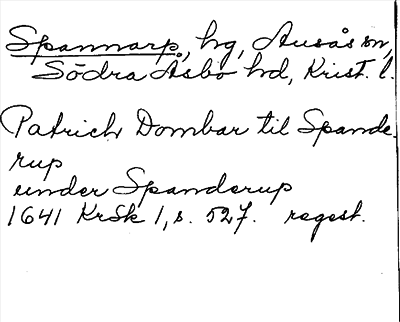 Spannarp, hg, Ausås sn,
Södra Åsbo hd, Krist. l.
Patrich Dombar til Spande
rup
under Spanderup
1641 KrSk 1, s. 527. regest.